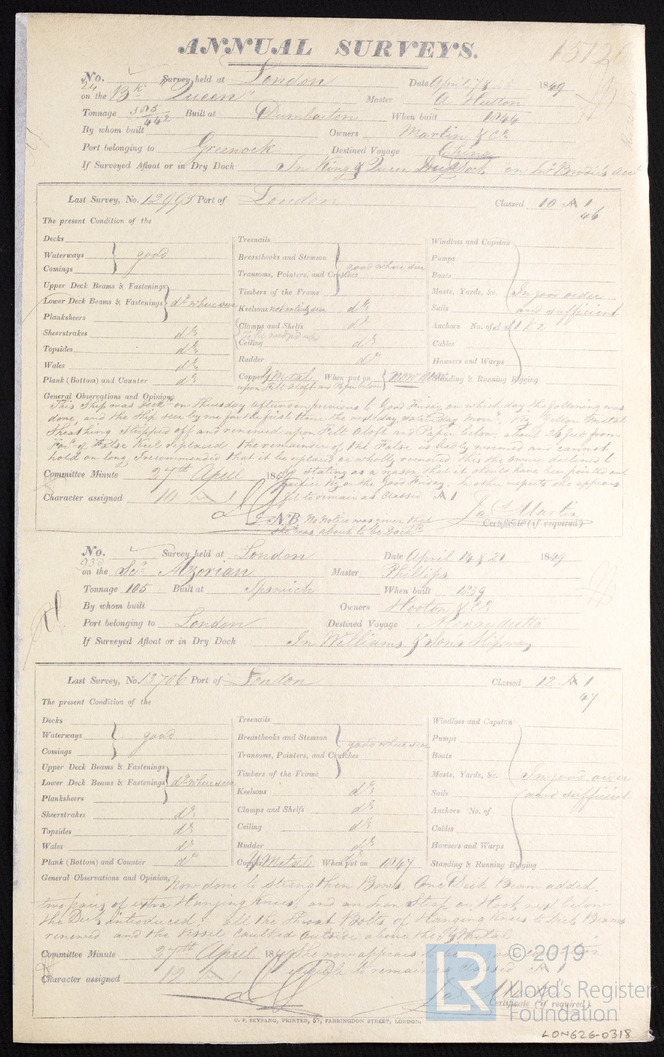 ANNUAL SURVEYS.
No. Survey held at London Date April 1849
on the Bk "Queen" Master A Hutton
Tonnage 442 Built at Dumbarton When built 1844
By whom built Owners Martin & Co
Port belonging to Greenock Destined Voyage China
If Surveyed Afloat or in Dry Dock In King & Queen Dry Dock
Last Survey, No. 12995 Port of London Classed 10 A 1
46
The present Condition of the
Decks
Waterways good
Comings
Upper Deck Beams & Fastenings
Lower Deck Beams & Fastenings do where seen
Planksheers
Sheerstrakes do
Topsides do
Wales do
Plank (Bottom) and Counter do
Treenails
Breasthooks and Stemson good where seen
Transoms, Pointers, and Crutches
Timbers of the Frame
Keelsons do
Clamps and Shelfs do
Ceiling
Rudder do
Copper Y Metal When put on now
upon Felt aloft and Paper below
Windlass and Capstan
Pumps
Boats
Masts, Yards, &c. In good order
Sails and sufficient
Anchors No. of
Cables
Hawsers and Warps
Standing & Running Rigging
General Observations and Opinion
This Ship was Dock on Thursday afternoon previous to Good Friday on which day the following was
done, and the Ship seen by me for the first time the next day Yellow Metal
Sheathing stripped off and renewed upon Felt Aloft and Paper below about 26 feet from
of False Keel replaced the remainder of the False is badly and cannot
hold on long, I recommended that it be replaced
Committee Minute 27th April 1849
stating as a reason that it should have been
on the Good Friday. In other respects she appears
Character assigned 10 A 1
to remain as Classed A 1
Jas Martin
NB No Notice was given that
she was about to be Dock'd
Certificate (if required)
No. Survey held at London Date April 14 & 21 1849
on the Sr Azorian Master Phillips
Tonnage 105 Built at Ipswich When built 1839
By whom built Owners Hooton & Co
Port belonging to London Destined Voyage Alexandretta
If Surveyed Afloat or in Dry Dock In Williams & Sons Slipway
Last Survey, No. 13706 Port of London Classed 12 A 1
47
The present Condition of the
Decks
Waterways good
Comings
Upper Deck Beams & Fastenings
Lower Deck Beams & Fastenings do where seen
Planksheers
Sheerstrakes do
Topsides do
Wales do
Plank (Bottom) and Counter do
Treenails
Breasthooks and Stemson good where seen
Transoms, Pointers, and Crutches
Timbers of the Frame
Keelsons do
Clamps and Shelfs do
Ceiling do
Rudder do
Copper Y Metal When put on 1847
Windlass and Capstan
Pumps
Boats
Masts, Yards, &c. In good order
Sails and sufficient
Anchors No. of
Cables
Hawsers and Warps
Standing & Running Rigging
General Observations and Opinion Now done to strengthen Bows. One Deck Beam added
two pairs of extra Hanging Knees, and an Iron Strap or Hook next below
the Deck introduced. All the Throat Bolts of Hanging Knees to Deck Beams
renewed and the Vessel caulked outside above the Y Metal.
Committee Minute 27th April 1849 She now appears
Character assigned 12 A 1
to remain as Classed A 1
Certificate (if required)
G. F. SEYFANG, PRINTER, 57, FARRINGDON STREET, LONDON.
LR
© 2019
Lloyd's Register
Foundation
LON626-0318